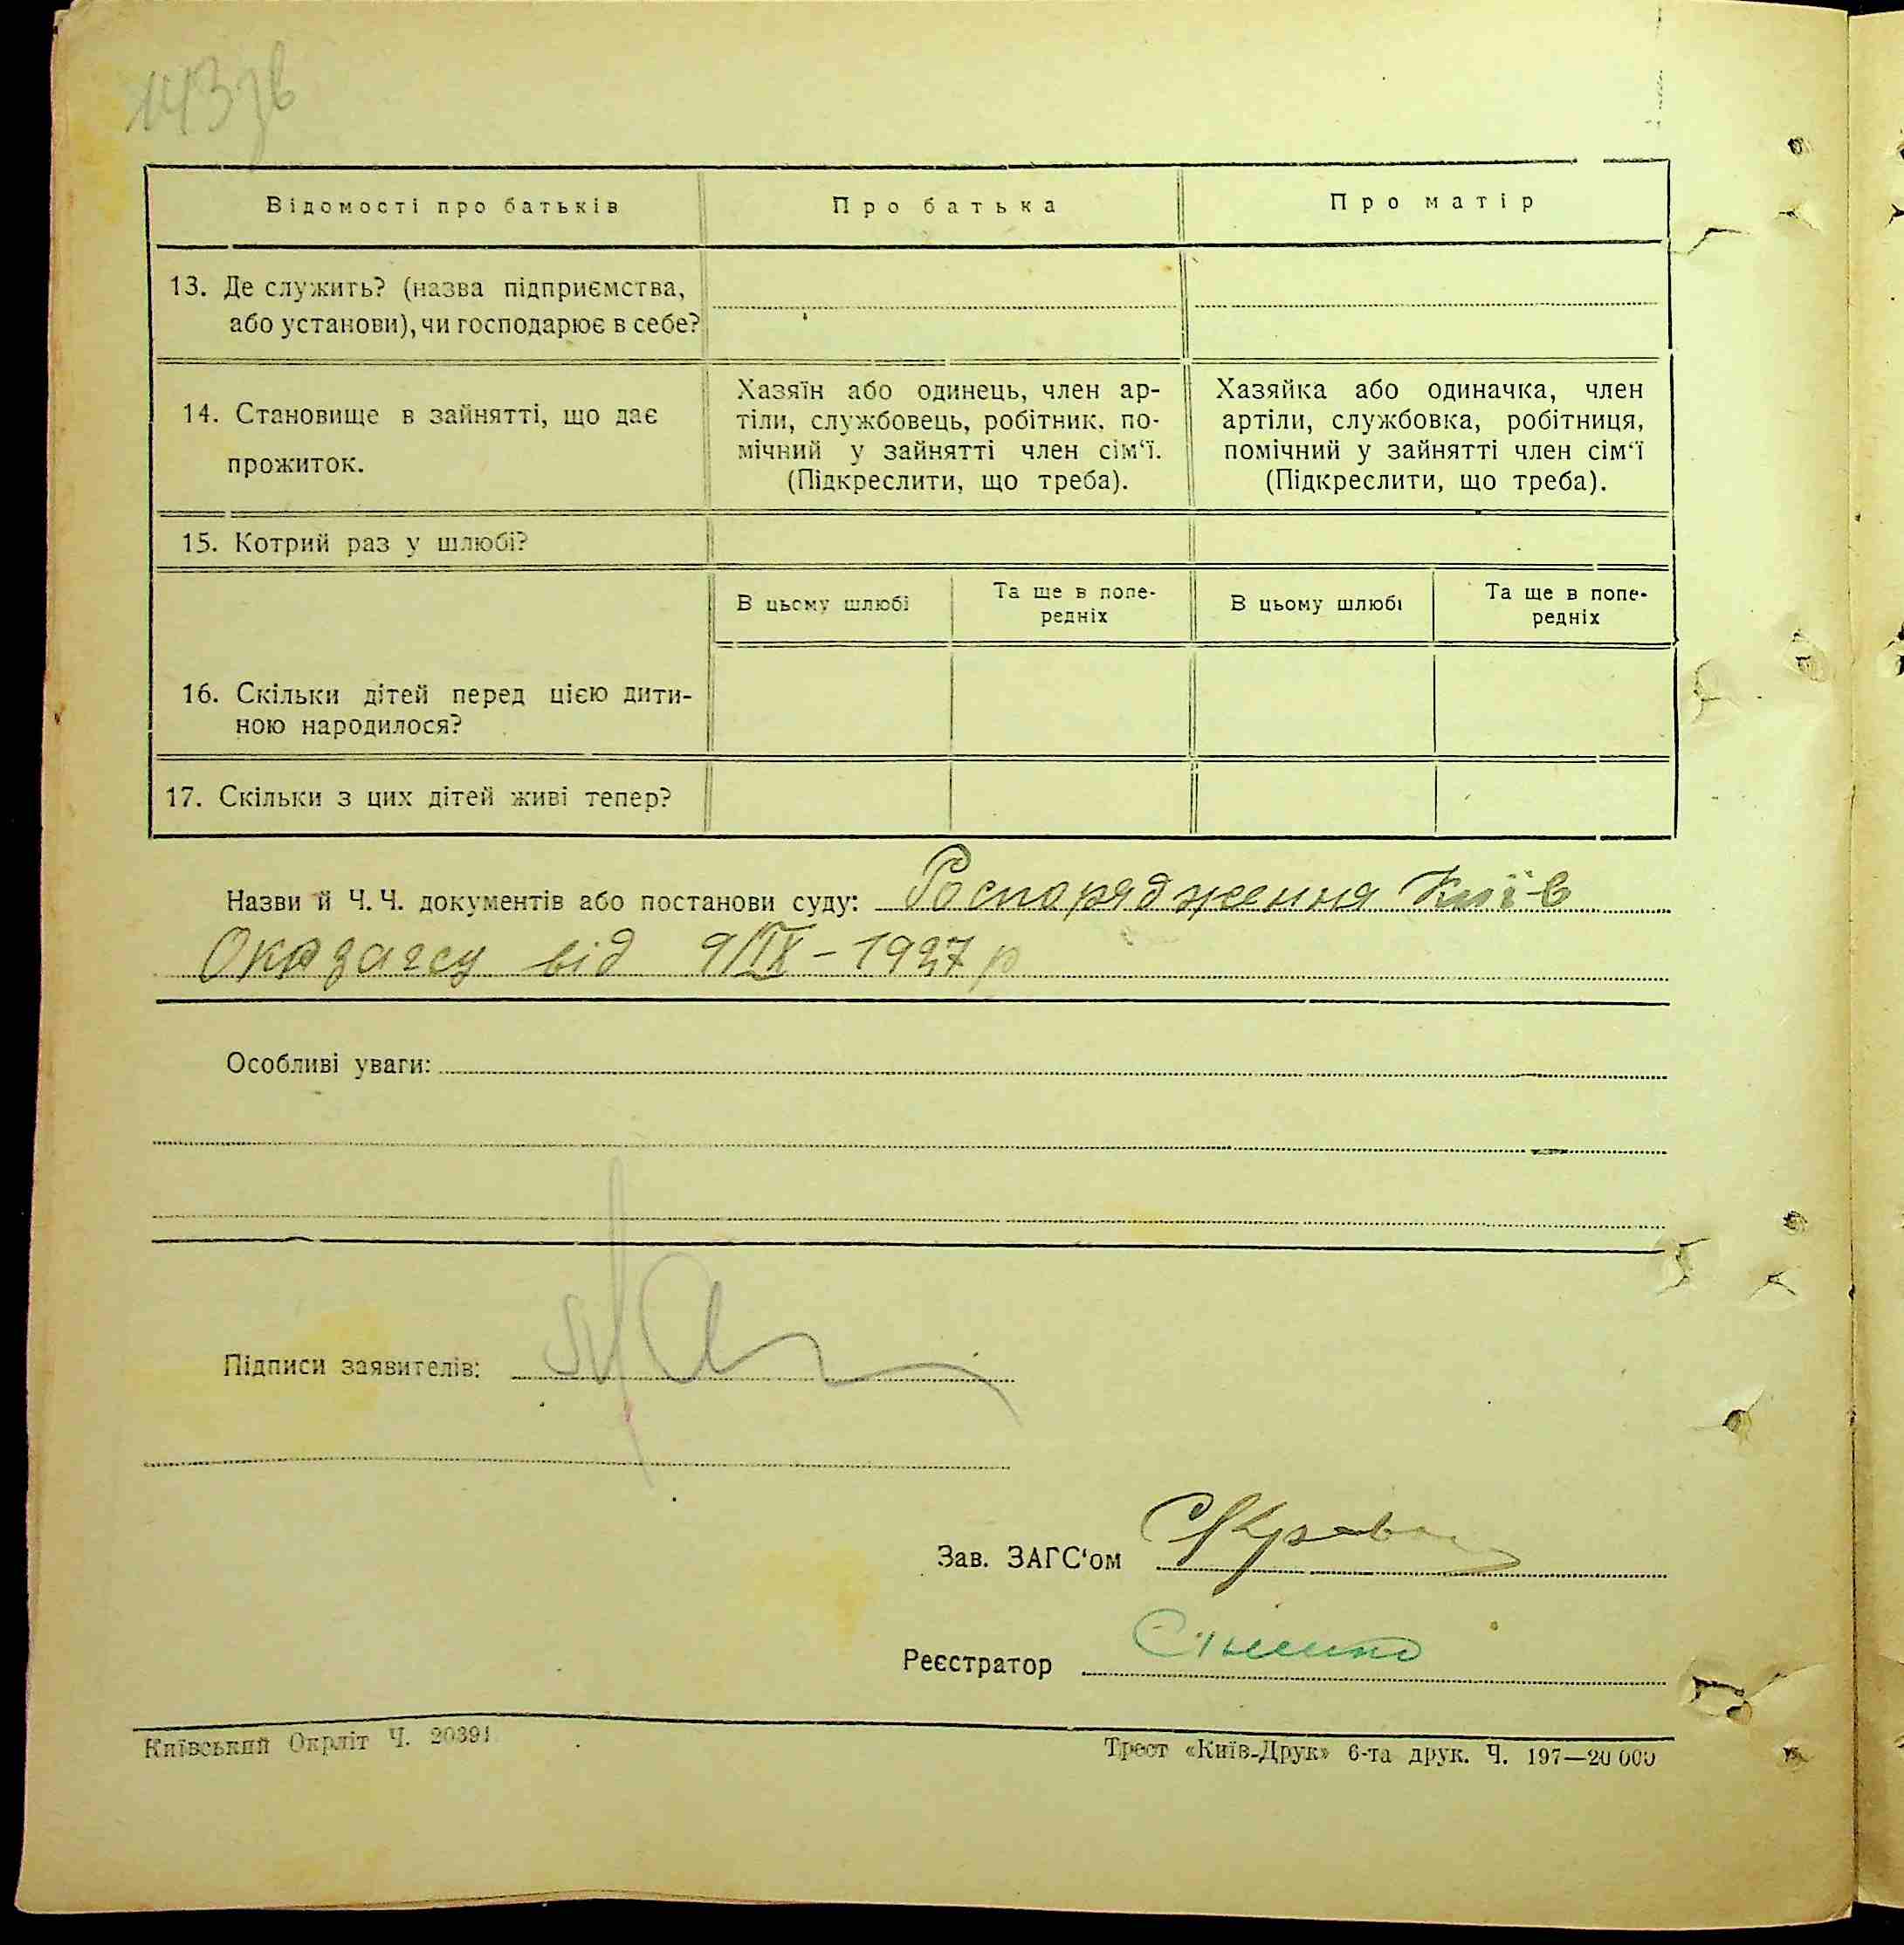 143 зв
Відомості про батьків
Про батька
Про матір
13. Де служить? (назва підприємства,
або установи), чи господарює в себе?
14. Становище в зайнятті, що дає
прожиток.
Хазяїн або одинець, член ар-
тіли, службовець, робітник, по-
мічний у зайнятті член сім‘ї.
(Підкреслити, що треба).
Хазяйка або одиначка, член
артіли, службовка, робітниця,
помічний у зайнятті член сім‘ї
(Підкреслити, що треба).
15. Котрий раз у шлюбі?
В цьому шлюбі
Та ще в попе-
редніх
В цьому шлюбі
Та ще в попе-
редніх
16. Скільки дітей перед цією дити-
ною народилося?
17. Скільки з цих дітей живі тепер?
Назви й Ч. Ч. документів або постанови суду: Роспорядження Київ
Окрзагсу від 9/IX – 1927 р
Особливі уваги:
Підписи заявителів:
Зав. ЗАГС‘ом
Реєстратор
Київський Окрліт Ч. 20391
Трест «Київ-Друк» 6-та друк. Ч. 197—20 000